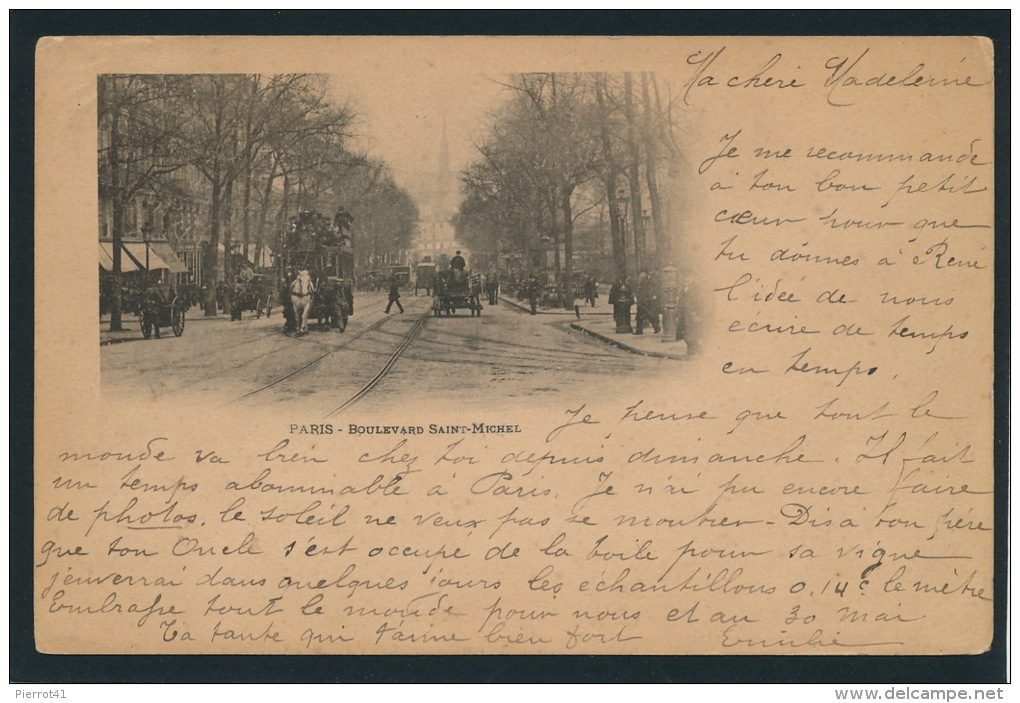 Ma chère Madeleine
Je me recommande
à ton bon petit
cœur pour que
tu donnes à René
l'idée de nous
écrire de temps
en temps.
PARIS - BOULEVARD SAINT-MICHEL
Je pense que tout le
monde va bien chez toi depuis dimanche. Il fait
un temps abominable à Paris. Je n'ai pu encore faire
de photos. le soleil ne veux pas se montrer - Dis à ton père
que ton Oncle s'est occupé de la toile pour sa vigne
j'enverrai dans quelques jours les échantillons 0,14c le mètre
Embrasse tout le monde pour nous et au 30 Mai
Ta tante qui t'aime bien fort Emilie
Pierrot41
www.delcampe.net